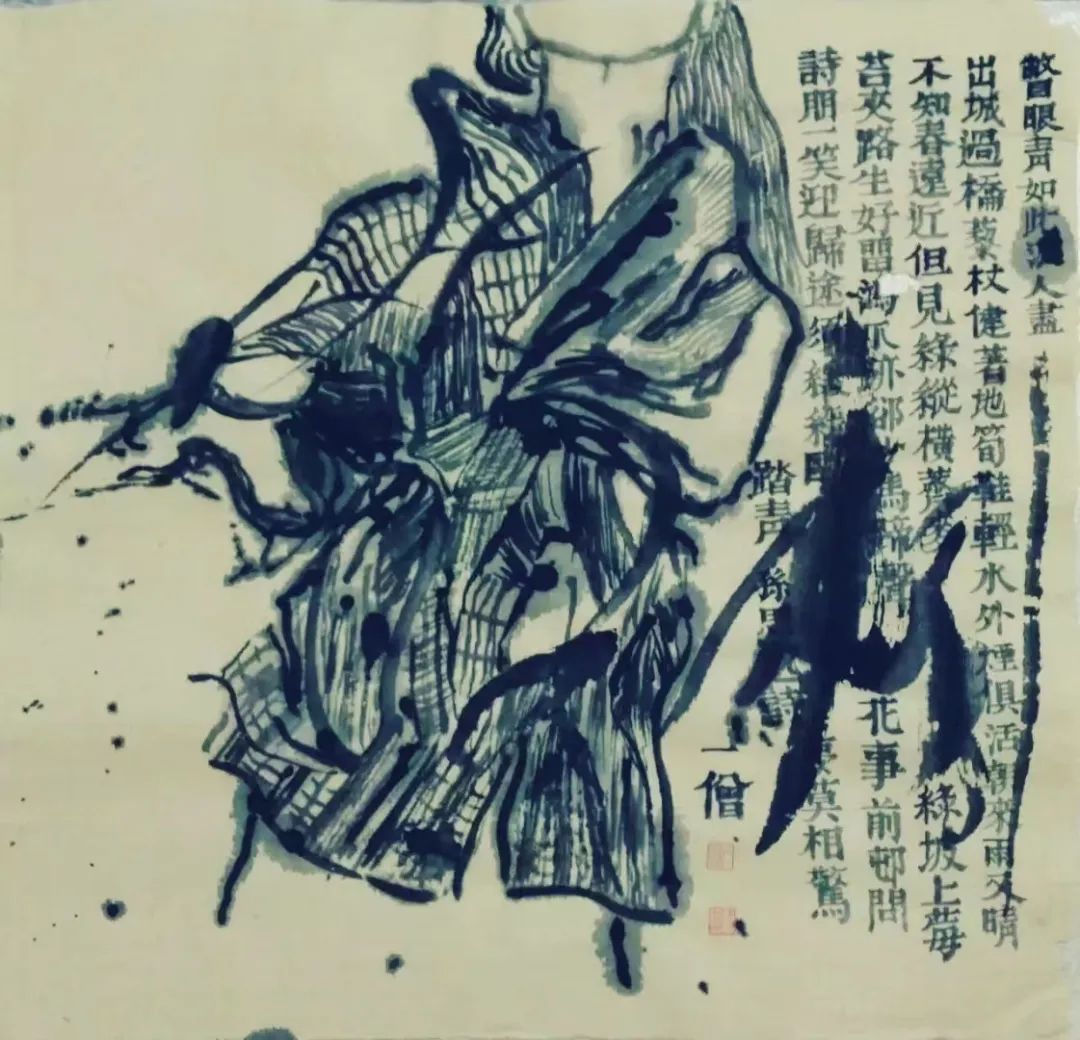 瞥眼青如此 人盡
出城過橋藜杖健著地筍鞋輕水外煙俱活朝來雨又晴
不知春遠近但見綠縱橫 綠坡上莓
苔夾路生好留鴻爪跡 啼聲 花事前邨問
詩朋一笑迎歸途須緩緩 莫相驚
踏青 孫 詩
一僧